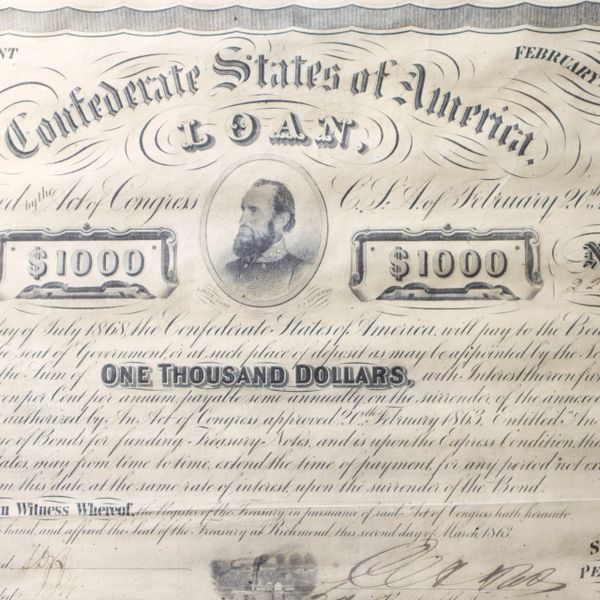 NT FEBRUARY
Confederate States of America.
LOAN,
ed by the Act of Congress C.S.A. of February 20th
$1000 $1000 N
LIEUT. GENL. T. J. JACKSON
ay of July 1868, the Confederate States of America, will pay to the Bea
the seat of Government, or at such place of deposit as may be appointed by the
the Sum of ONE THOUSAND DOLLARS, with Interest thereon from
en per Cent per annum, payable semi annually on the surrender of the annexe
authorized by An Act of Congress approved 20th February 1863, Entitled "An
ue of Bonds for funding Treasury Notes, and is upon the Express Condition tha
ates, may from time to time, extend the time of payment, for any period not ex
om this date, at the same rate of interest, upon the surrender of the Bond.
n Witness Whereof, the Register of the Treasury in pursuance of said Act of Congress hath, hereunto
hand, and affixed the Seal of the Treasury at Richmond, this second day of March 1863
ed
S
PE